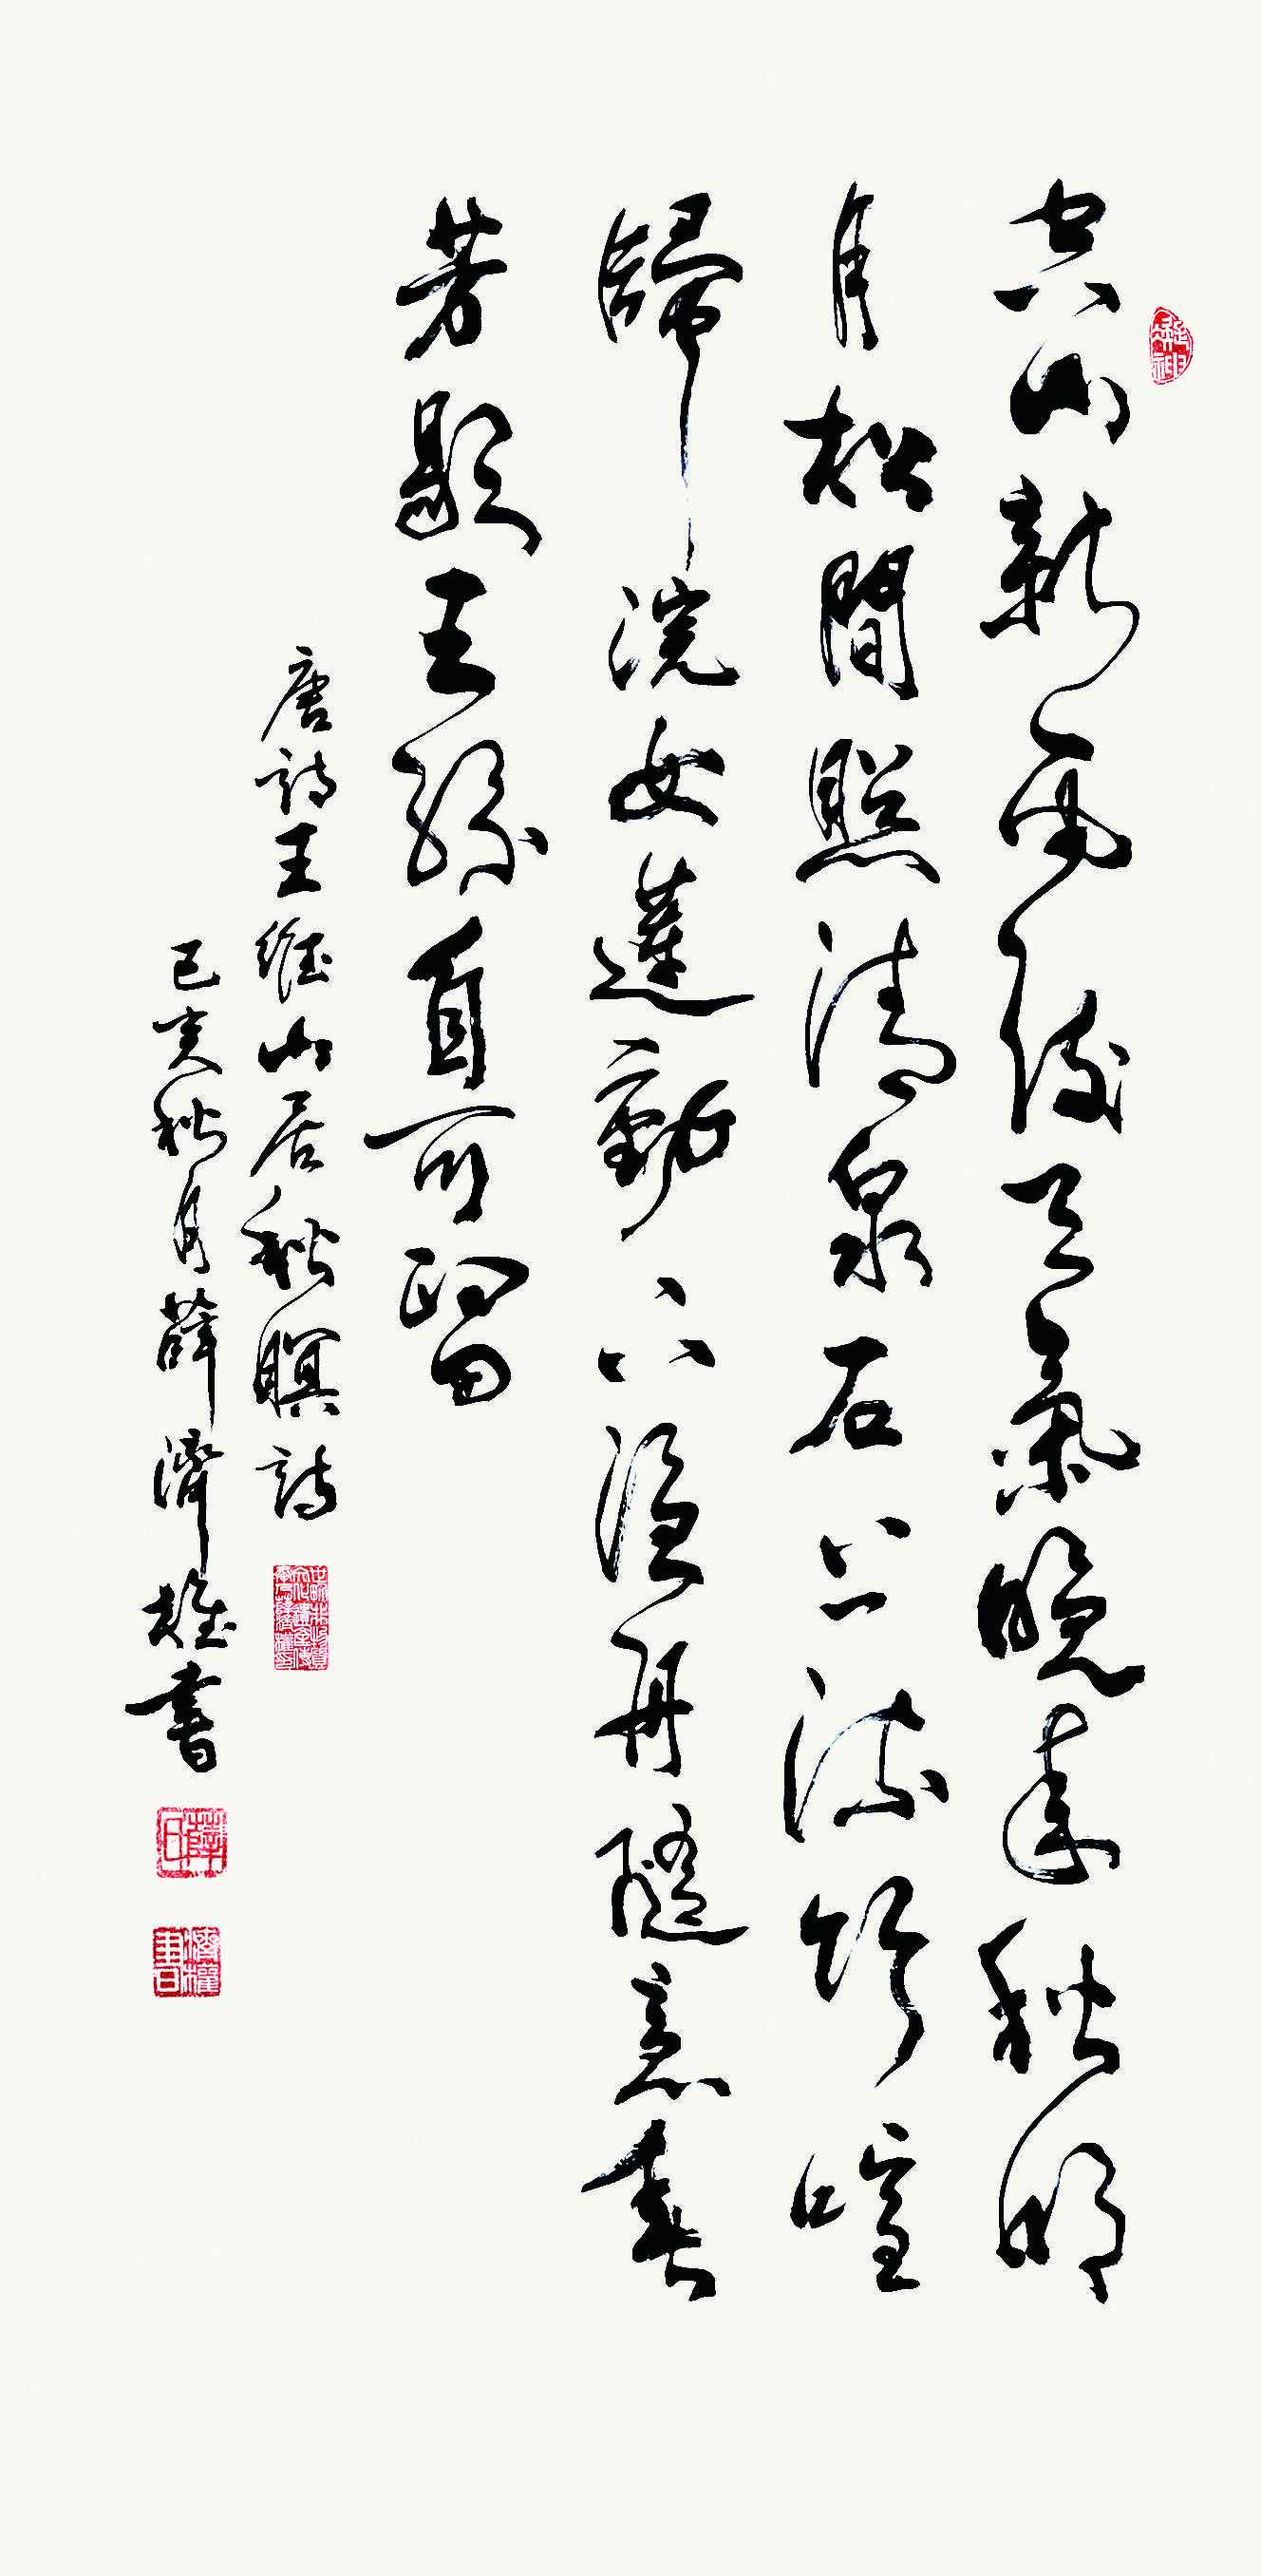 空山新雨後天氣晚來秋明
月松間照清泉石上流竹喧
歸浣女蓮動下漁舟隨意春
芳歇王孫自可留
唐詩王維山居秋瞑詩
己亥秋月薛濟權書
薛印
濟權書